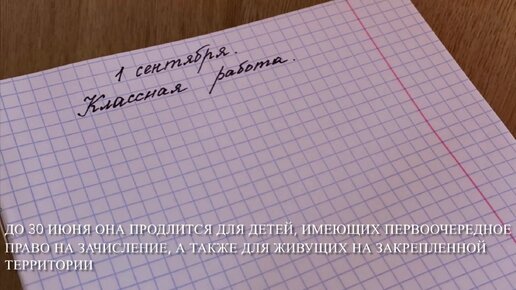 1 сентября.
Классная работа.
ДО 30 ИЮНЯ ОНА ПРОДЛИТСЯ ДЛЯ ДЕТЕЙ, ИМЕЮЩИХ ПЕРВООЧЕРЕДНОЕ
ПРАВО НА ЗАЧИСЛЕНИЕ, А ТАКЖЕ ДЛЯ ЖИВУЩИХ НА ЗАКРЕПЛЕННОЙ
ТЕРРИТОРИИ